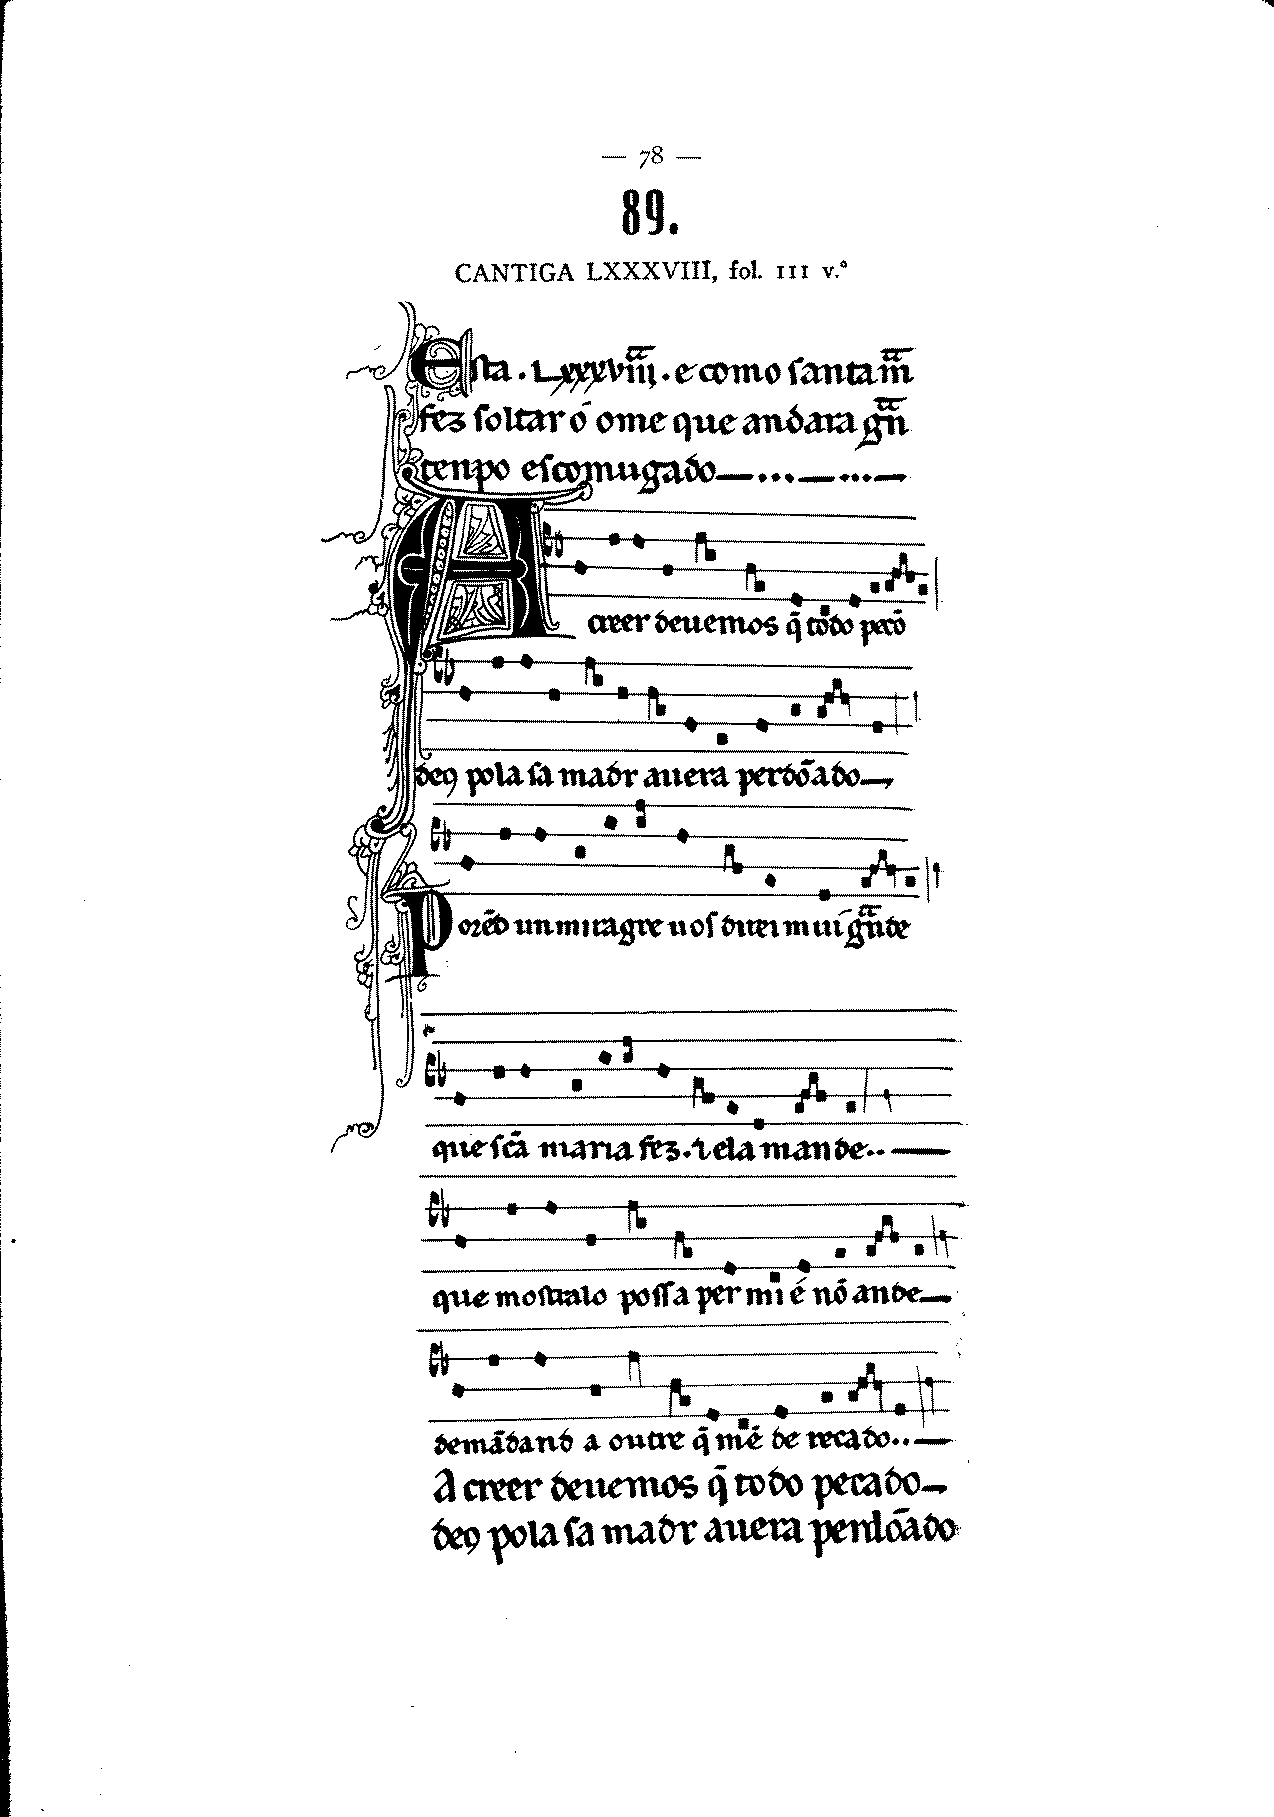 — 78 —
89.
CANTIGA LXXXVIII, fol. 111 v.º
Esta . Lxxxviij . e como santa m̃
fez soltar ó ome que andara gñ
tenpo escomugado
A creer deuemos q̃ todo pecõ
deꝯ pola sa madr auera perdõado
Porẽd un miragre uos direi mui gñde
que scã maria fez . ⁊ ela mande
que mostralo possa per mi é nõ ande
demãdand a outre q̃ mẽ de recado
A creer deuemos q̃ todo pecado
deꝯ pola sa madr auera perdõado